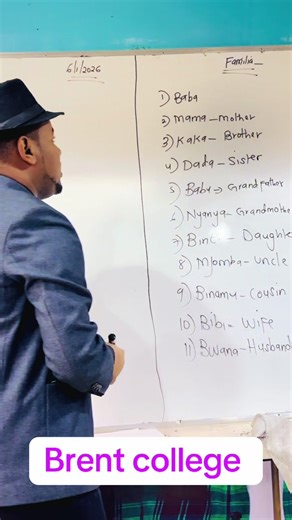 6/1/2026
Familia
1) Baba
2) Mama – Mother
3) Kaka – Brother
4) Dada – Sister
5) Babu → Grandfather
6) Nyanya – Grandmothe
7) Binti – Daughte
8) Mjomba – Uncle
9) Binamu – Cousin
10) Bibi – Wife
11) Bwana – Husband
Brent college